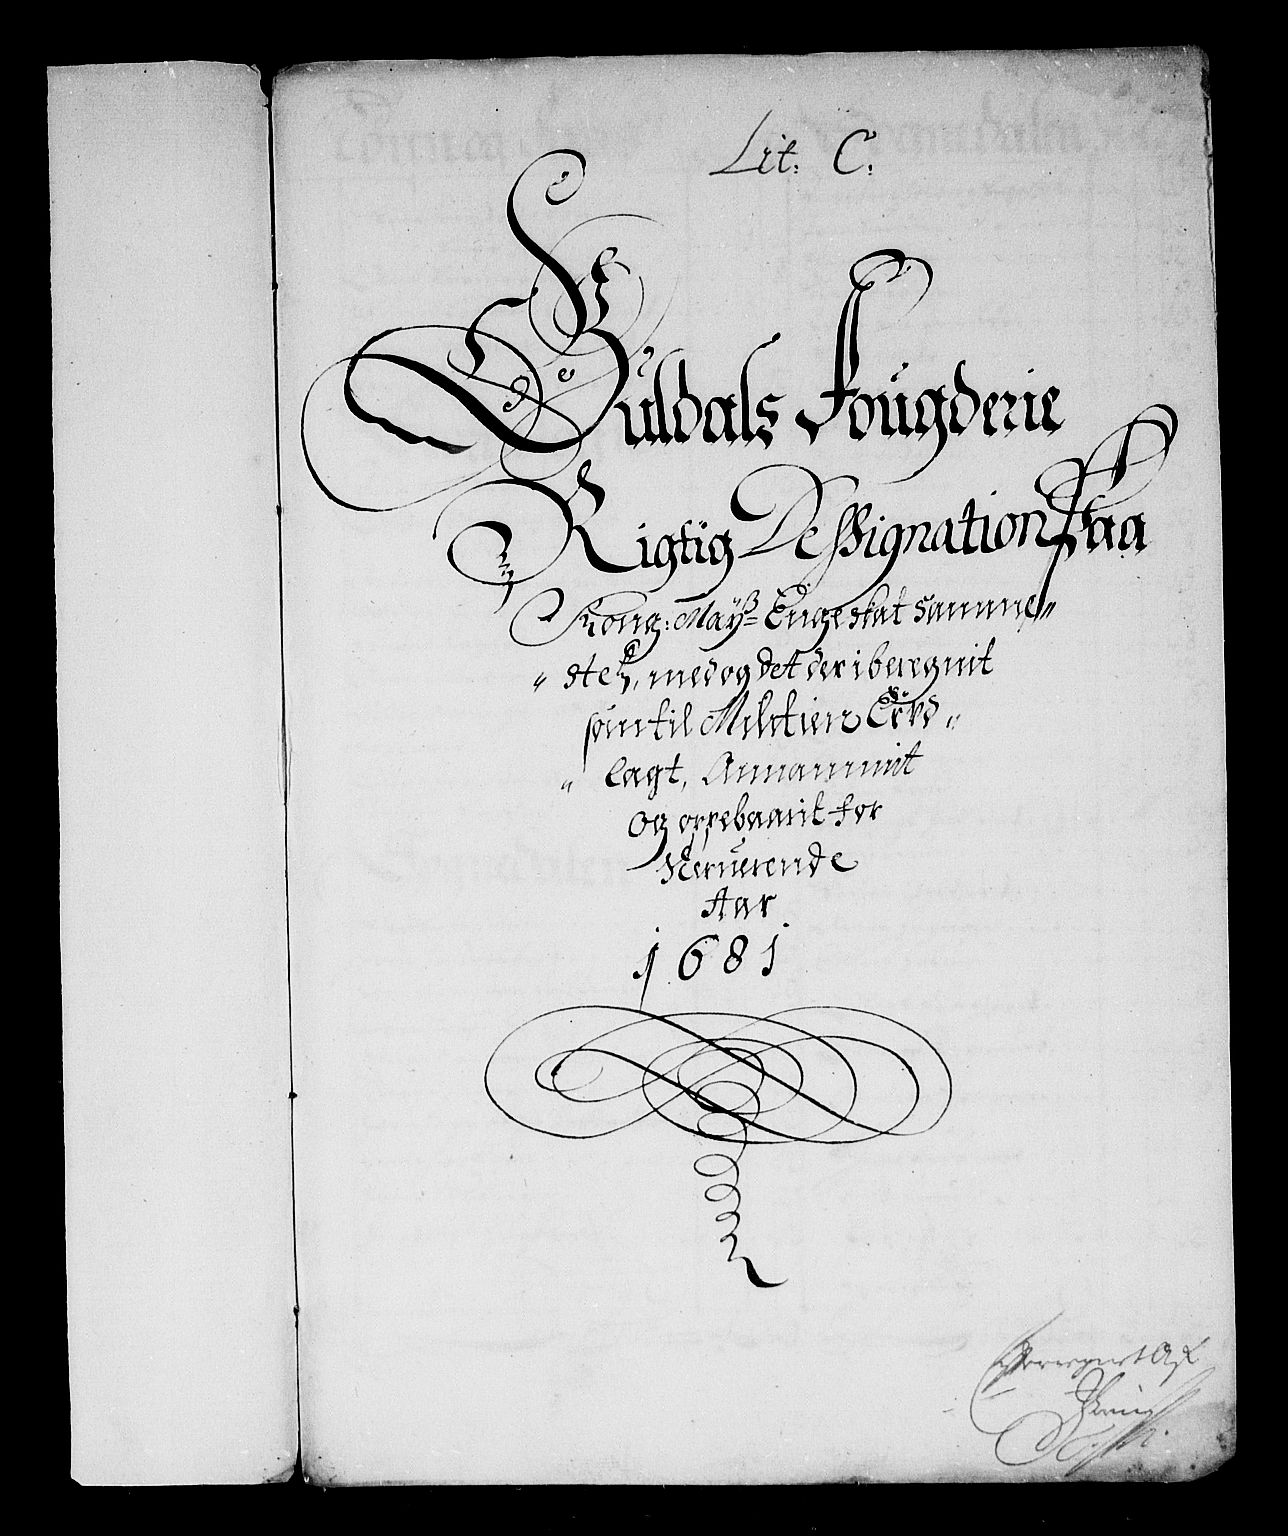 Lit: C:
Guldals Fougderie
Rigtig Dessignation Paa
Kong: Mayß Enge Skat Samme„
„ sted, med og det der iberegnit
som til Militien Er
„ lagt, Annammit
og oppebaarit for
Nerverende
Aar
1681